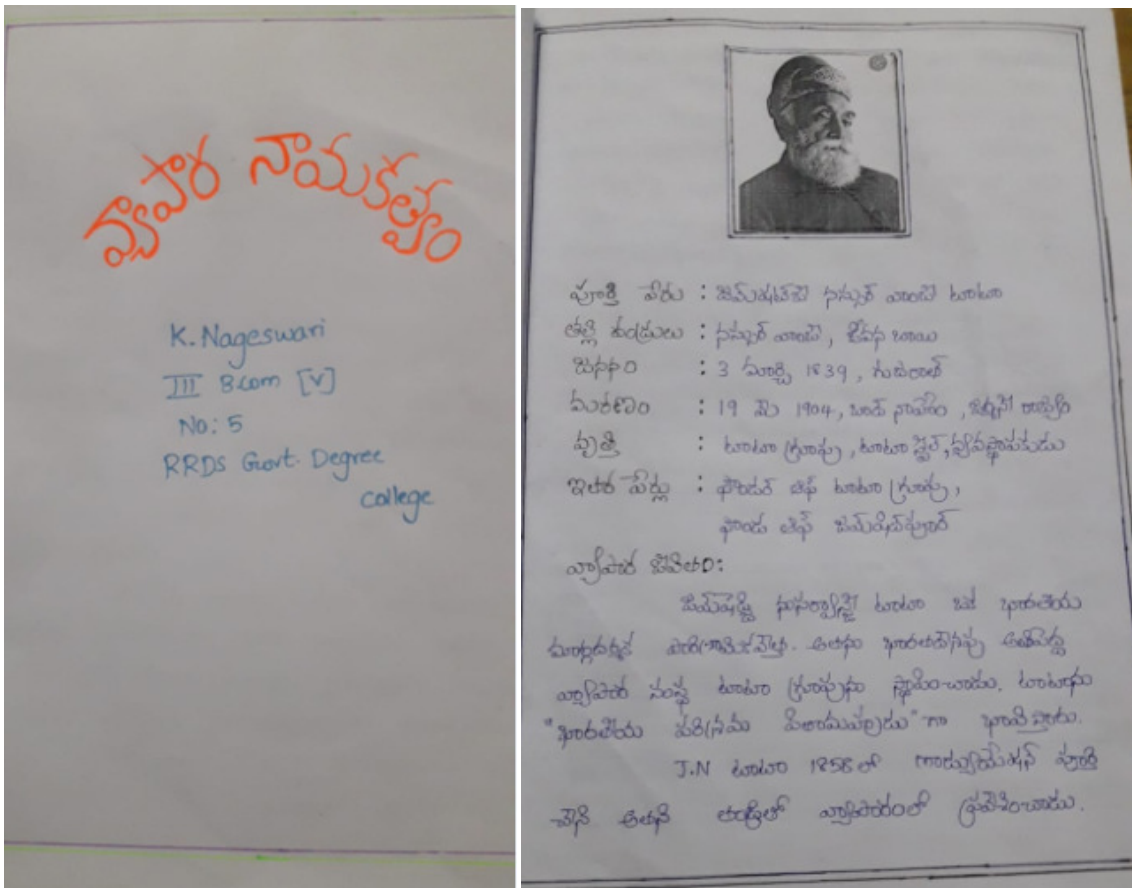 వ్యాపార నాయకత్వం
K. Nageswari
III B.com [V]
No: 5
RRDS Govt. Degree
college
పూర్తి పేరు : జమ్‌షెట్‌జీ నస్సుర్ వాంజీ టాటా
తల్లి తండ్రులు : నస్సుర్ వాంజీ, జీవన బాయి
జననం : 3 మార్చి 1839, గుజరాత్
మరణం : 19 మే 1904, బాడ్ నాహేం, జర్మనీ రాజ్యం
వృత్తి : టాటా గ్రూపు, టాటా స్టీల్, వ్యవస్థాపకుడు
ఇతర పేర్లు : ఫౌండర్ ఆఫ్ టాటా గ్రూపు,
ఆఫ్ జమ్‌షెడ్‌పూర్
వ్యాపార జీవితం:
టాటా ఒక భారతీయ
మార్గదర్శక పారిశ్రామికవేత్త. అతను భారతదేశపు అతిపెద్ద
వ్యాపార సంస్థ టాటా గ్రూపును స్థాపించాడు. టాటాను
"భారతీయ పరిశ్రమ పితామహుడు" గా భావిస్తారు.
J.N టాటా 1858 లో గ్రాడ్యుయేషన్ పూర్తి
చేసి అతని తండ్రితో వ్యాపారంలో ప్రవేశించాడు.